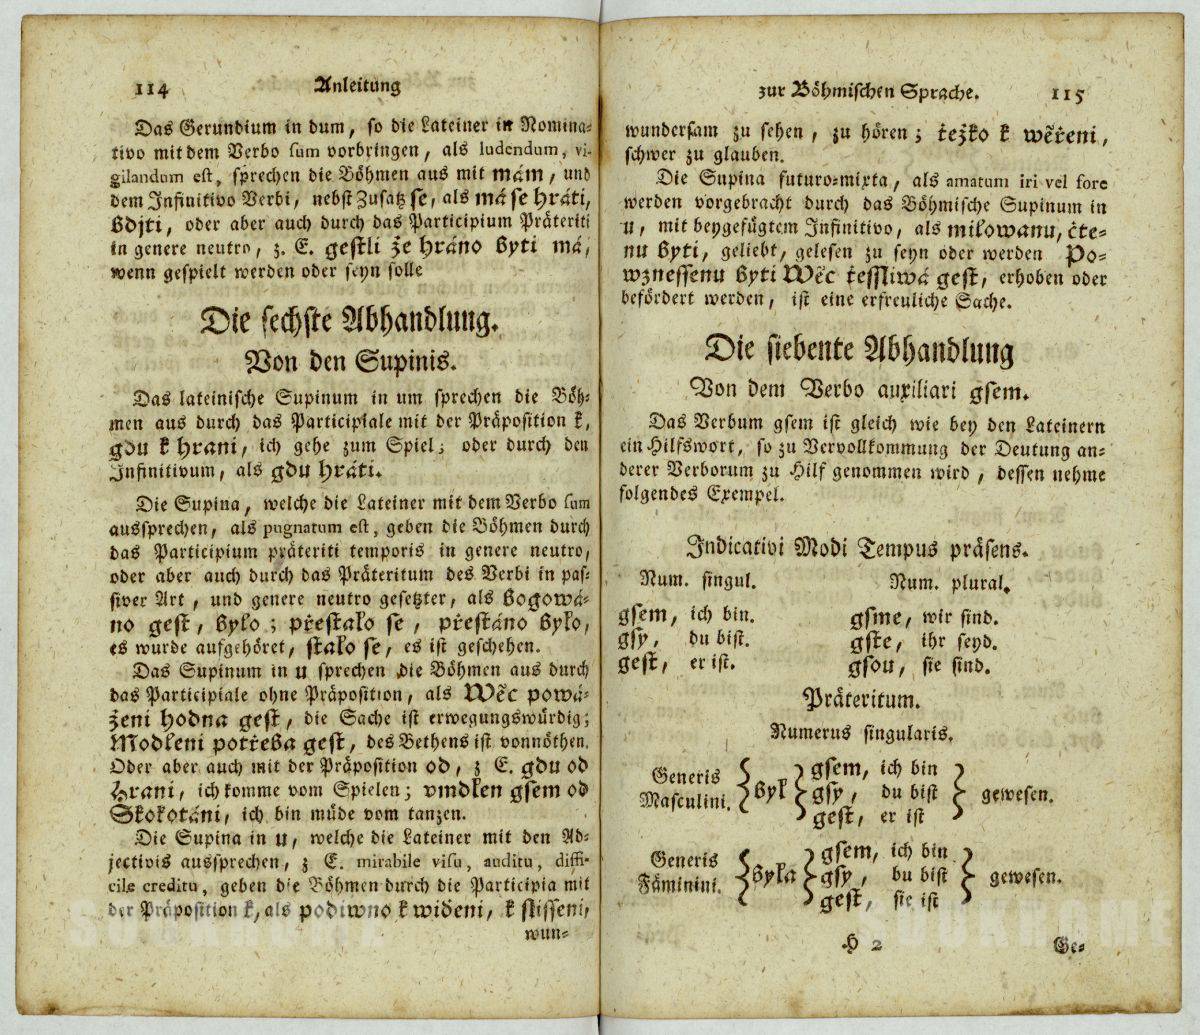 114 Anleitung
Das Gerundium in dum, so die Lateiner in Nomina-
tivo mit dem Verbo sum vorbringen, als ludendum, vi-
gilandum est, sprechen die Böhmen aus mit mám, und
dem Infinitivo Verbi, nebst Zusatz se, als má se hráti,
bdjti, oder aber auch durch das Participium Präteriti
in genere neutro, z. E. gestli že hráno byti má,
wenn gespielt werden oder seyn solle
Die sechste Abhandlung.
Von den Supinis.
Das lateinische Supinum in um sprechen die Böh-
men aus durch das Participiale mit der Präposition k,
gdu k hrani, ich gehe zum Spiel; oder durch den
Infinitivum, als gdu hráti.
Die Supina, welche die Lateiner mit dem Verbo sum
aussprechen, als pugnatum est, geben die Böhmen durch
das Participium präteriti temporis in genere neutro,
oder aber auch durch das Präteritum des Verbi in pas-
siver Art, und genere neutro gesetzter, als bogowá-
no gest, bylo; přestalo se, přestáno bylo,
es wurde aufgehöret, stalo se, es ist geschehen.
Das Supinum in u sprechen die Böhmen aus durch
das Participiale ohne Präposition, als Wěc powá-
ženi hodna gest, die Sache ist erwegungswürdig;
Modleni potřeba gest, des Bethens ist vonnöthen.
Oder aber auch mit der Präposition od, z E. gdu od
Hrani, ich komme vom Spielen; vmdlen gsem od
Skokotáni, ich bin müde vom tanzen.
Die Supina in u, welche die Lateiner mit den Ad-
jectivis aussprechen, z E. mirabile visu, auditu, diffi-
cile creditu, geben die Böhmen durch die Participia mit
der Präposition k, als podiwno k wideni, k slisseni,
wun-
zur Böhmischen Sprache. 115
wundersam zu sehen, zu hören; težko k wěřeni,
schwer zu glauben.
Die Supina futuro-mixta, als amatum iri vel fore
werden vorgebracht durch das Böhmische Supinum in
u, mit beygefügtem Infinitivo, als milowanu, čte-
nu byti, geliebt, gelesen zu seyn oder werden Po-
wznessenu byti Wěc tessliwá gest, erhoben oder
befördert werden, ist eine erfreuliche Sache.
Die siebente Abhandlung
Von dem Verbo auxiliari gsem.
Das Verbum gsem ist gleich wie bey den Lateinern
ein Hilfswort, so zu Vervollkommung der Deutung an-
derer Verborum zu Hilf genommen wird, dessen nehme
folgendes Exempel.
Indicativi Modi Tempus präsens.
Num. singul. Num. plural.
gsem, ich bin. gsme, wir sind.
gsy, du bist. gste, ihr seyd.
gest, er ist. gsou, sie sind.
Präteritum.
Numerus singularis.
Generis Masculini. { byl { gsem, ich bin
gsy, du bist } gewesen.
gest, er ist
Generis Fäminini. { byla { gsem, ich bin
gsy, bu bist } gewesen.
gest, sie ist
H 2 Ge-